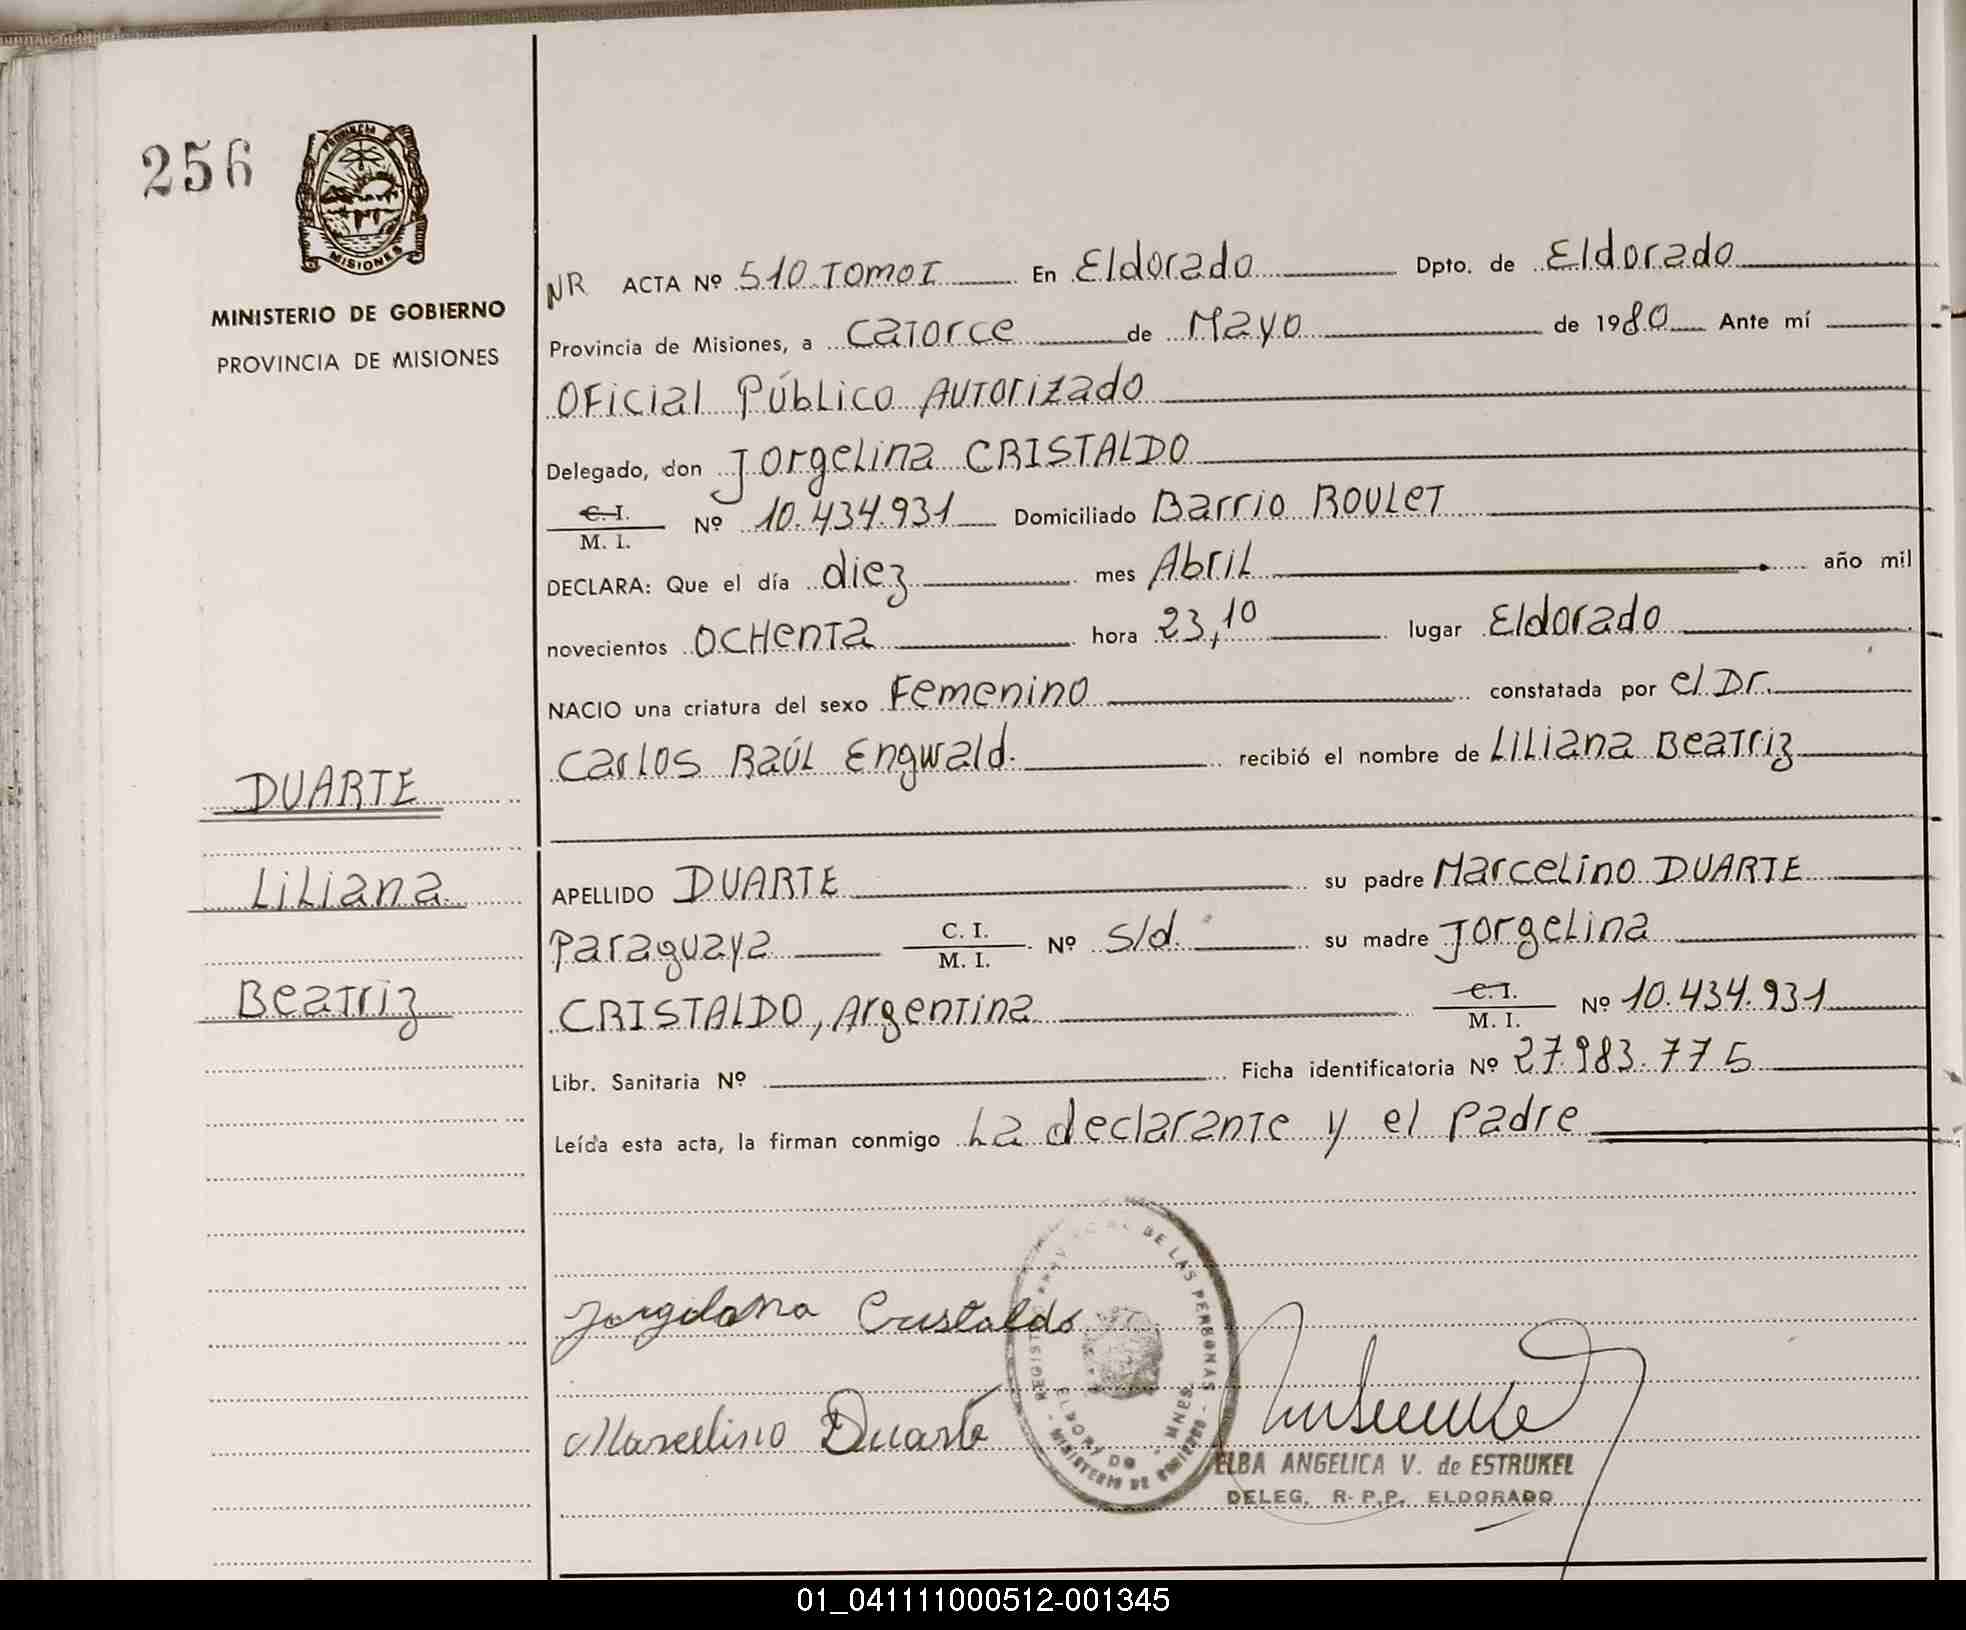 256
PROVINCIA DE
MISIONES
MINISTERIO DE GOBIERNO
PROVINCIA DE MISIONES
DUARTE
Liliana
Beatriz
NR ACTA Nº 510 TOMO I En Eldorado Dpto. de Eldorado
Provincia de Misiones, a catorce de Mayo de 1980 Ante mí
Oficial Público Autorizado
Delegado, don Jorgelina CRISTALDO
C. I.
M. I. Nº 10.434.931 Domiciliado Barrio Roulet
DECLARA: Que el día diez mes Abril año mil
novecientos ochenta hora 23,10 lugar Eldorado
NACIO una criatura del sexo Femenino constatada por el Dr.
Carlos Raúl Engwald. recibió el nombre de Liliana Beatriz
APELLIDO DUARTE su padre Marcelino DUARTE
Paraguaya C. I. M. I. Nº s/d. su madre Jorgelina
CRISTALDO, Argentina C. I. M. I. Nº 10.434.931
Libr. Sanitaria Nº Ficha identificatoria Nº 27.983.775
Leída esta acta, la firman conmigo La declarante y el padre
Jorgelina Cristaldo
Marcelino Duarte
DE LAS PERSONAS
MINISTERIO DE GOBIERNO
ELDORADO MNES.
ELBA ANGELICA V. de ESTRUKEL
DELEG. R.P.P. ELDORADO
01_041111000512-001345